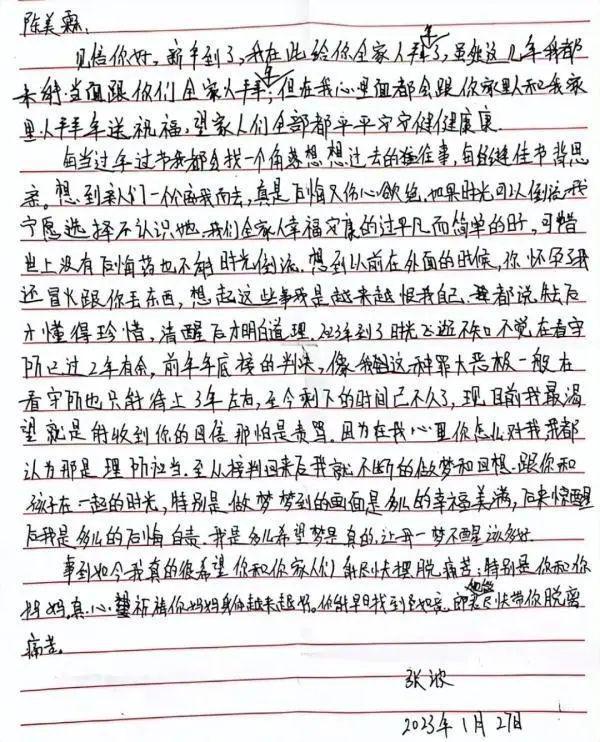 陈美霖:
见信你好,新年到了,我在此给你全家人拜年了,虽然这几年我都
未能当面跟你们全家人拜年,但在我心里面都会跟你家里人和我家
里人拜年送祝福,望家人们全部都平平安安健健康康.
每当过年过节我都会找一个角落想想过去的往事,每逢佳节倍思
亲。想到亲人们一个个离我而去,真是后悔又伤心欲绝,如果时光可以倒流我
宁愿选择不认识她.我们全家人幸福安康的过平凡而简单的日子,可惜
世上没有后悔药也不能时光倒流.想到以前在外面的时候,你怀孕了我
还冒火跟你丢东西,想起这些事我是越来越恨我自己.都说失去后
才懂得珍惜,清醒后才明白道理.2023年到了时光飞逝不知不觉在看守
所已过2年有余,前年年底接的判决,像我们这种罪大恶极一般在
看守所也只能待上3年左右,至今剩下的时间已不久了,现目前我最渴
望就是能收到你的回信那怕是责骂.因为在我心里你怎么对我我都
认为那是理所应当.至从接判回来后我就不断的做梦和回想.跟你和
孩子在一起的时光,特别是做梦梦到的画面是多么的幸福美满,后来惊醒
后我是多么的后悔自责.我是多么希望梦是真的,让我一梦不醒该多好.
事到如今我真的很希望你和你家人们能尽快摆脱痛苦,特别是你和你
妈妈.真心祈祷你妈妈身体越来越好。你能早日找到如意郎君尽快带你脱离
痛苦。
张波
2023年1月27日